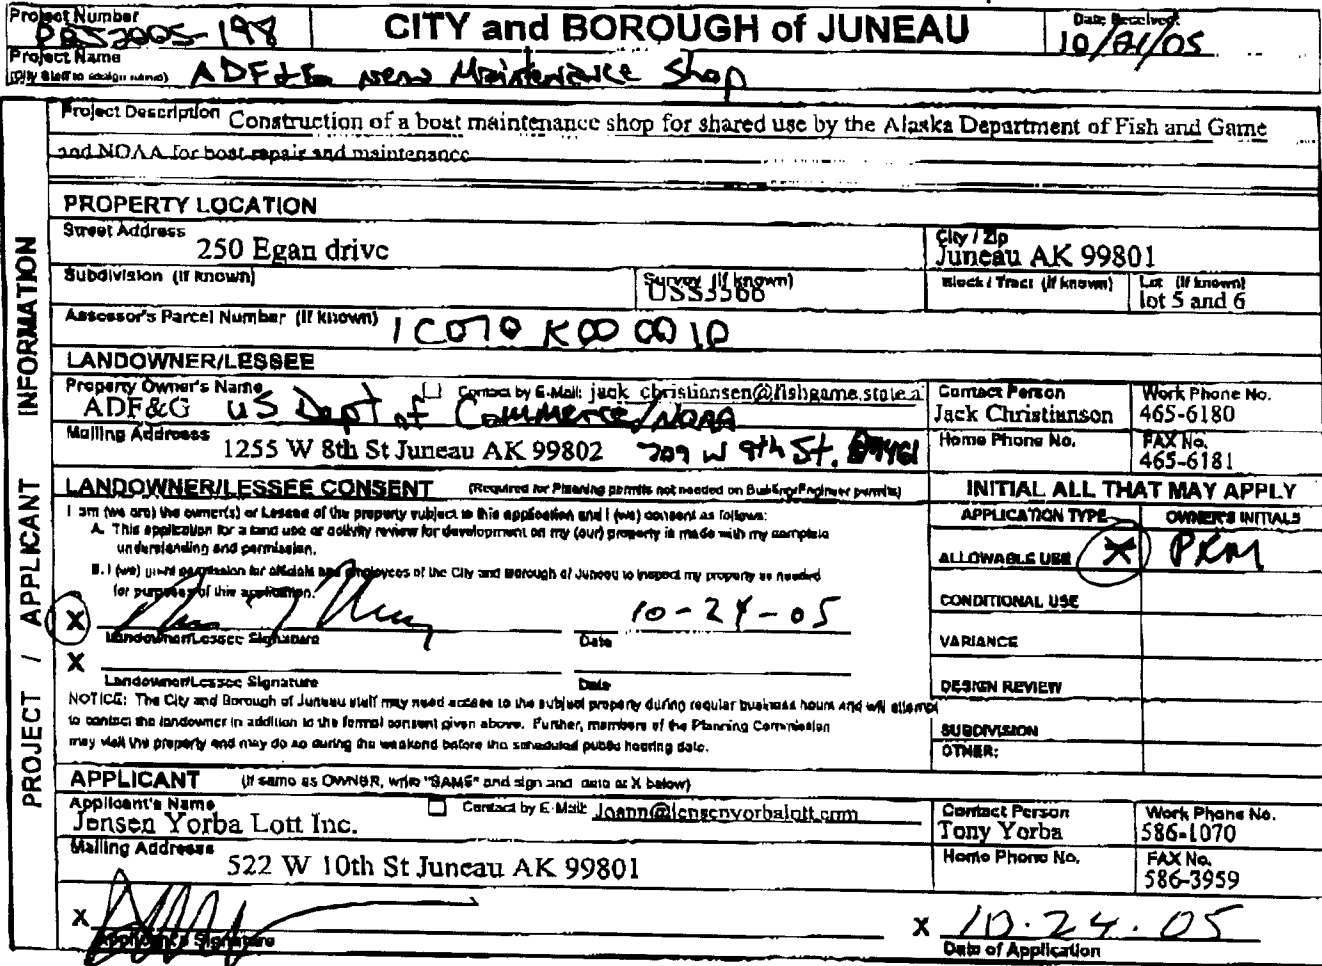 Project Number
CITY and BOROUGH of JUNEAU
Date Received:
-198
10/21/05
Project Name
(City Staff to assign name)
ADF&G new Maintenance Shop
Project Description
Construction of a boat maintenance shop for shared use by the Alaska Department of Fish and Game
and NOAA for boat repair and maintenance
PROJECT / APPLICANT INFORMATION
PROPERTY LOCATION
Street Address
250 Egan drive
City / Zip
Juneau AK 99801
Subdivision (if known)
Survey (if known)
USS3566
Block / Tract (if known)
Lot (if known)
lot 5 and 6
Assessor's Parcel Number (if known)
1C070K000010
LANDOWNER/LESSEE
Property Owner's Name
Contact by E-Mail: jack_christiansen@fishgame.state.a
ADF&G US Dept of Commerce/NOAA
Contact Person
Jack Christianson
Work Phone No.
465-6180
Mailing Addresss
1255 W 8th St Juneau AK 99802 709 W 9th St.
Home Phone No.
FAX No.
465-6181
LANDOWNER/LESSEE CONSENT (Required for Planning permits not needed on Building/Engineer permits)
I am (we are) the owner(s) or Lessee of the property subject to this application and I (we) consent as follows:
A. This application for a land use or activity review for development on my (our) property is made with my complete
understanding and permission.
B. I (we) grant permission for officials and employees of the City and Borough of Juneau to inspect my property as needed
for purposes of this application.
X
10-24-05
Landowner/Lessee Signature
Date
X
Landowner/Lessee Signature
Date
NOTICE: The City and Borough of Juneau staff may need access to the subject property during regular business hours and will attempt
to contact the landowner in addition to the formal consent given above. Further, members of the Planning Commission
may visit the property and may do so during the weekend before the scheduled public hearing date.
INITIAL ALL THAT MAY APPLY
APPLICATION TYPE
OWNER'S INITIALS
ALLOWABLE USE X PKM
CONDITIONAL USE
VARIANCE
DESIGN REVIEW
SUBDIVISION
OTHER:
APPLICANT (If same as OWNER, write "SAME" and sign and date at X below)
Applicant's Name
Contact by E-Mail: Joann@jensenyorbalott.com
Jensen Yorba Lott Inc.
Contact Person
Tony Yorba
Work Phone No.
586-1070
Mailing Addresss
522 W 10th St Juneau AK 99801
Home Phone No.
FAX No.
586-3959
X
Applicant's Signature
X 10.24.05
Date of Application